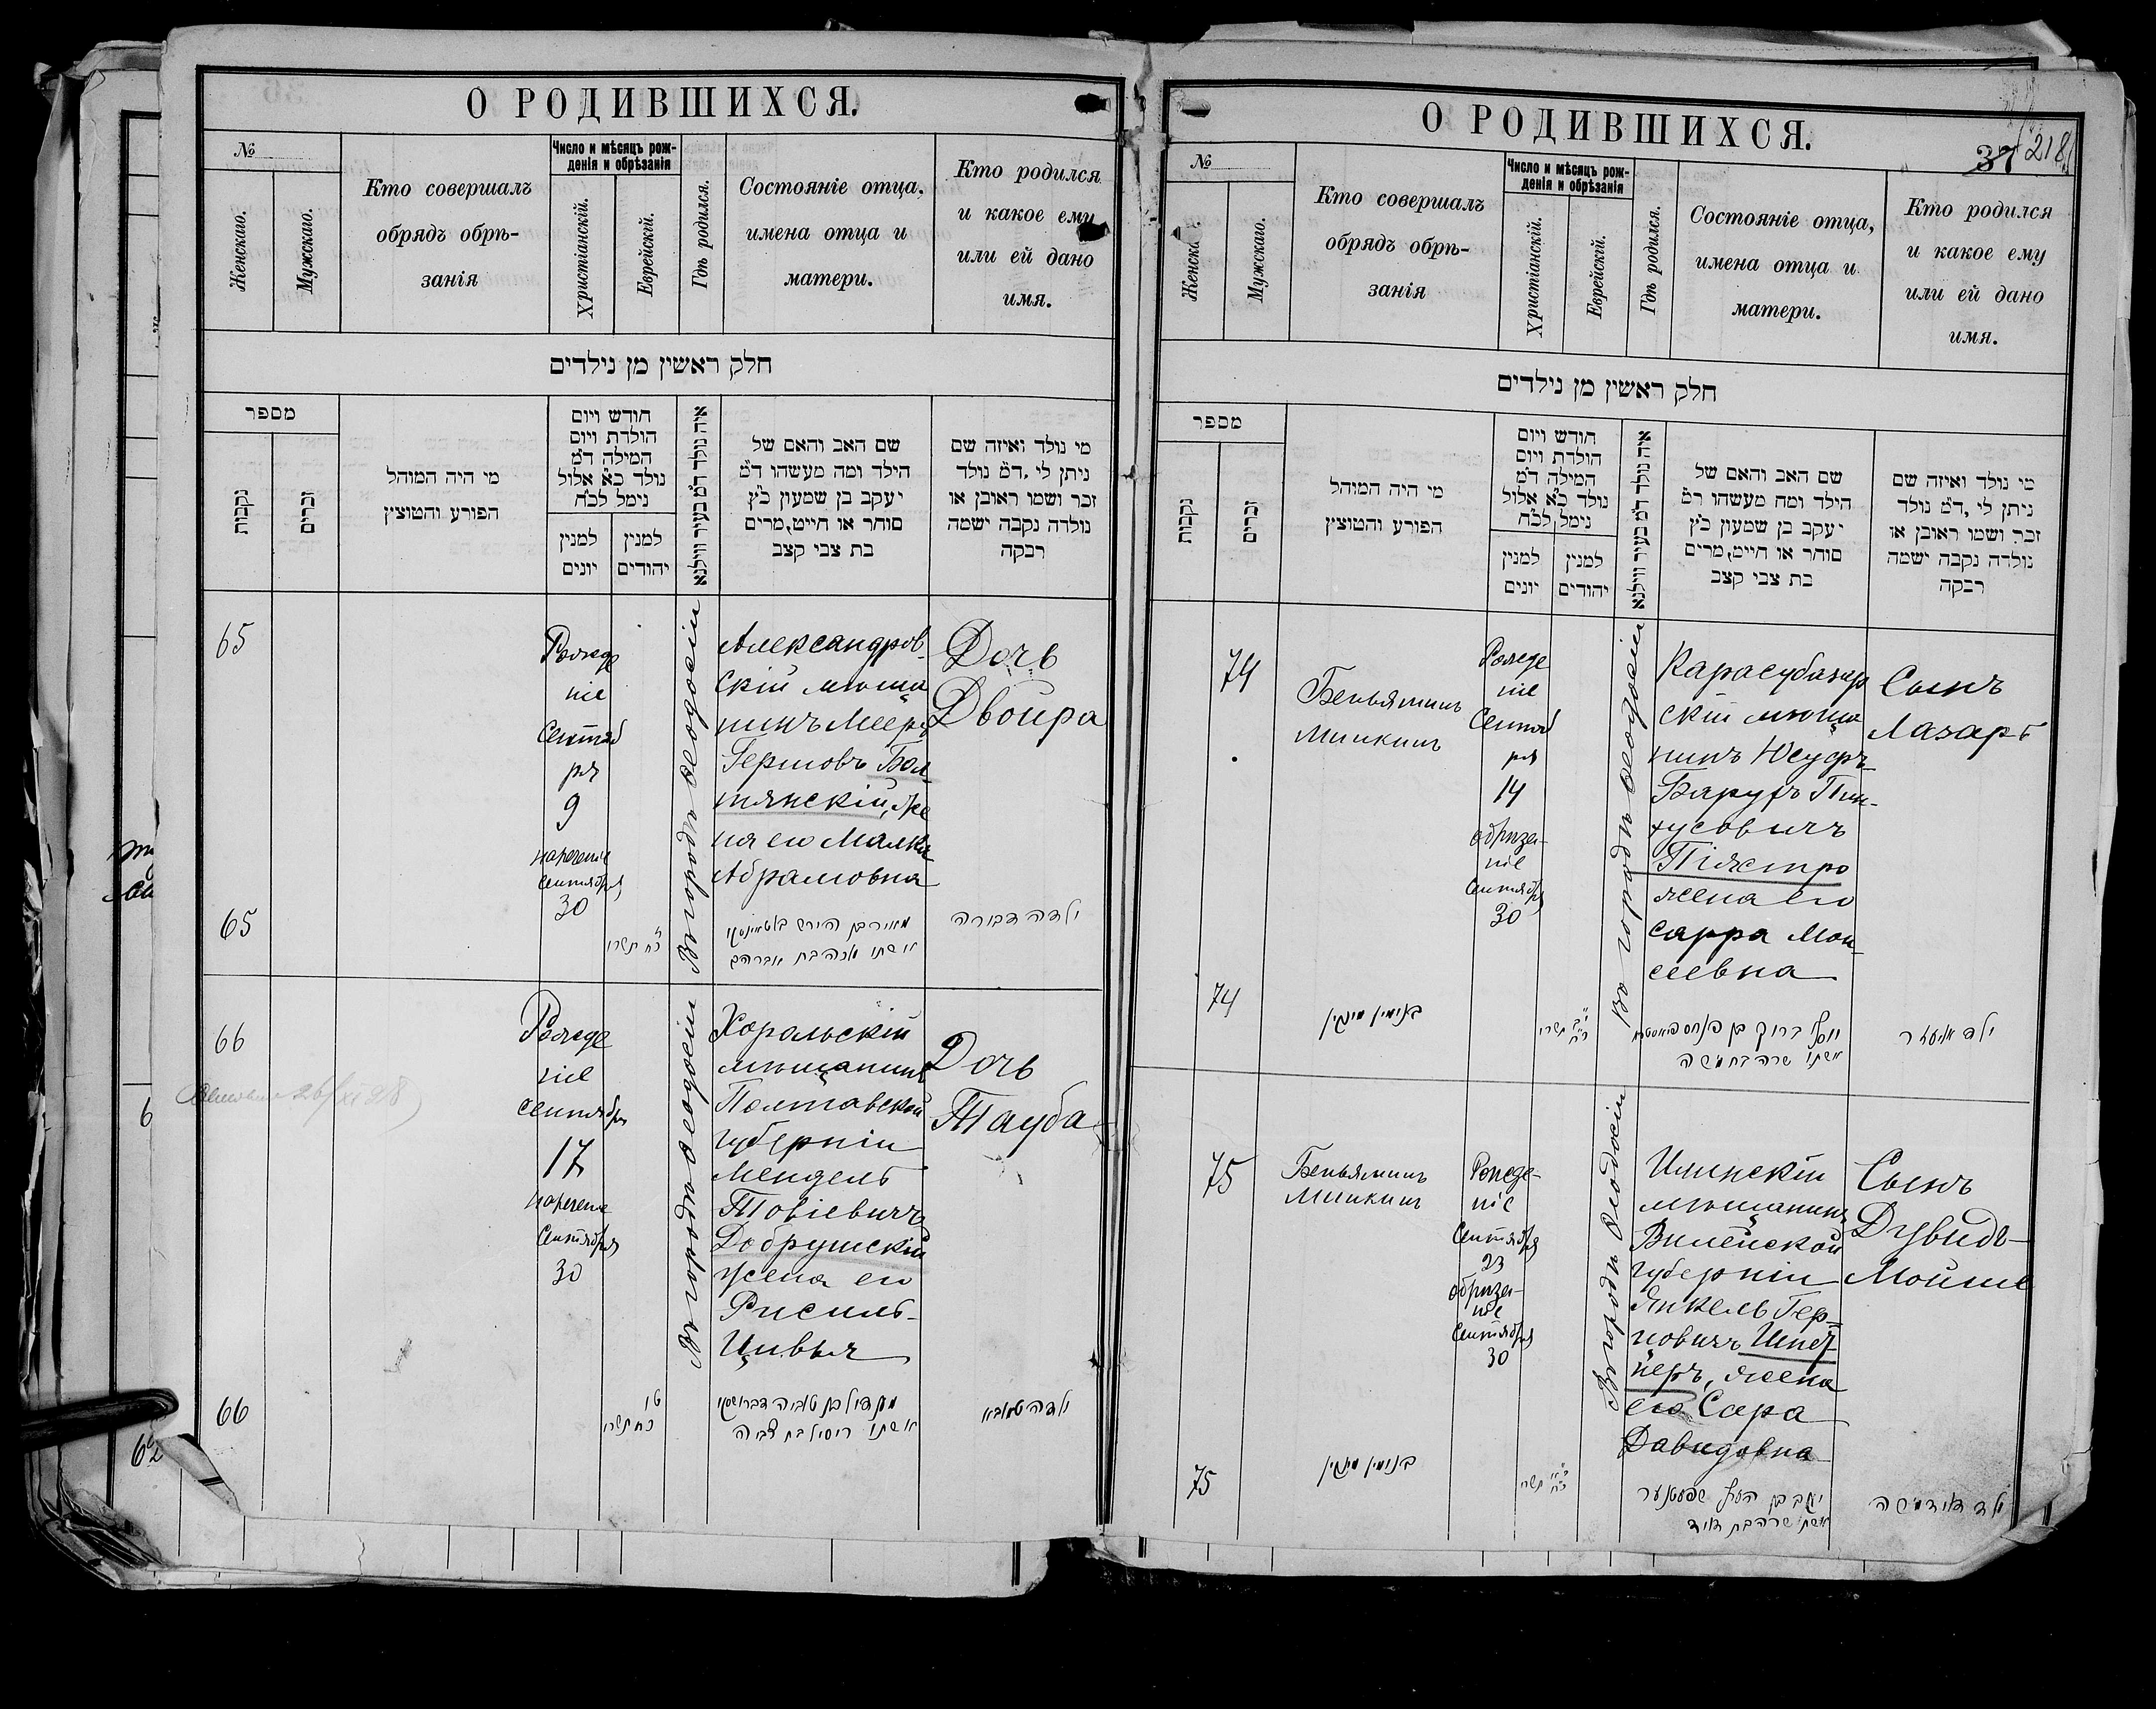 О РОДИВШИХСЯ.
№
Женскаго.
Мужскаго.
Кто совершалъ
обрядъ обрѣ-
занія
Число и мѣсяцъ рож-
денія и обрѣзанія
Христіанскій.
Еврейскій.
Гдѣ родился.
Состояніе отца,
имена отца и
матери.
Кто родился
и какое ему
или ей дано
имя.
חלק ראשין מן נילדים
מספר
נקבות
זכרים
מי היה המוהל
הפורע והטוצץ
חודש ויום
הולדת ויום
המילה ד"מ
נולד כ"א אלול
נימל לכ"ח
למנין
יונים
למנין
יהודים
איה נולד ד"מ בעיר ווילנא
שם האב והאם של
הילד ומה מעשהו ד"מ
יעקב בן שמעון כ"ץ
סוחר או חייט,מרים
בת צבי קצב
מי נולד ואיזה שם
ניתן לי ,ד"מ נולד
זכר ושמו ראובן או
נולדה נקבה ישמה
רבקה
65
Рожде
ніе
Сентяб
ря
9
нареченіе
Сентября
30
Въ городѣ Ѳеодосіи
Александров-
скій мѣща
нинъ Мееръ
Гершовъ Бол-
тянскій, же
на его Малка
Абрамовна
Дочь
Двойра
65
כח תשרי
מאיר בן הירש באלטיאנסקי
אשתו מלכה בת אברהם
ילדה דבורה
66
Рожде
ніе
Сентября
17
нареченіе
Сентября
30
Въ городѣ Ѳеодосіи
Хорольскій
мѣщанинъ
Полтавской
губерніи
Мендель
Товіевичъ
Добрушскій
жена его
Рисиль-
Цивья
Дочь
Тауба
66
טו
כח תשרי
מענדיל בן טוביה דברושסקי
אשתו ריסיל בת צביה
ילדה טאובא
О РОДИВШИХСЯ.
37 218
№
Женска
Мужскаго.
Кто совершалъ
обрядъ обрѣ-
занія
Число и мѣсяцъ рож-
денія и обрѣзанія
Христіанскій.
Еврейскій.
Гдѣ родился.
Состояніе отца,
имена отца и
матери.
Кто родился
и какое ему
или ей дано
имя.
חלק ראשין מן נילדים
מספר
נקבות
זכרים
מי היה המוהל
הפורע והטוצץ
חודש ויום
הולדת ויום
המילה ד"מ
נולד כ"א אלול
נימל לכ"ח
למנין
יונים
למנין
יהודים
איה נולד ד"מ בעיר ווילנא
שם האב והאם של
הילד ומה מעשהו ד"מ
יעקב בן שמעון כ"ץ
סוחר או חייט,מרים
בת צבי קצב
מי נולד ואיזה שם
ניתן לי ,ד"מ נולד
זכר ושמו ראובן או
נולדה נקבה ישמה
רבקה
74
Беньяминъ
Минкинъ
Рожде
ніе
Сентяб
ря
14
обрѣза-
ніе
Сентября
30
Въ городѣ Ѳеодосіи
Карасубазар
скій мѣща
нинъ Юсуфъ-
Барухъ Пин-
хусовичъ
Піястро
жена его
Сарра Мои-
сеевна
Сынъ
Лазарь
74
בנימין מינקין
תשרי
יוסף ברוך בן פנחס פיאסטרא
אשתו שרה בת משה
ילד אליעזר
75
Беньяминъ
Минкинъ
Рожде-
ніе
Сентября
23
обрѣза-
ніе
Сентября
30
Въ городѣ Ѳеодосіи
Илинскій
мѣщанинъ
Виленской
губерніи
Янкель Гер-
цовичъ Шпей-
церъ, жена
его Сара
Давидовна
Сынъ
Дувидъ-
Мойше
75
בנימין מינקין
תשרי
אשתו שרה בת דוד
ילד דוד משה